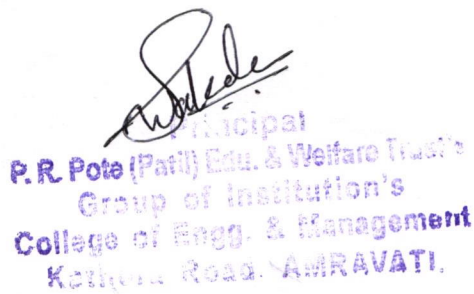 Principal
P. R. Pote (Patil) Edu. & Welfare Trust's
Group of Institution's
College of Engg. & Management
Road. AMRAVATI.